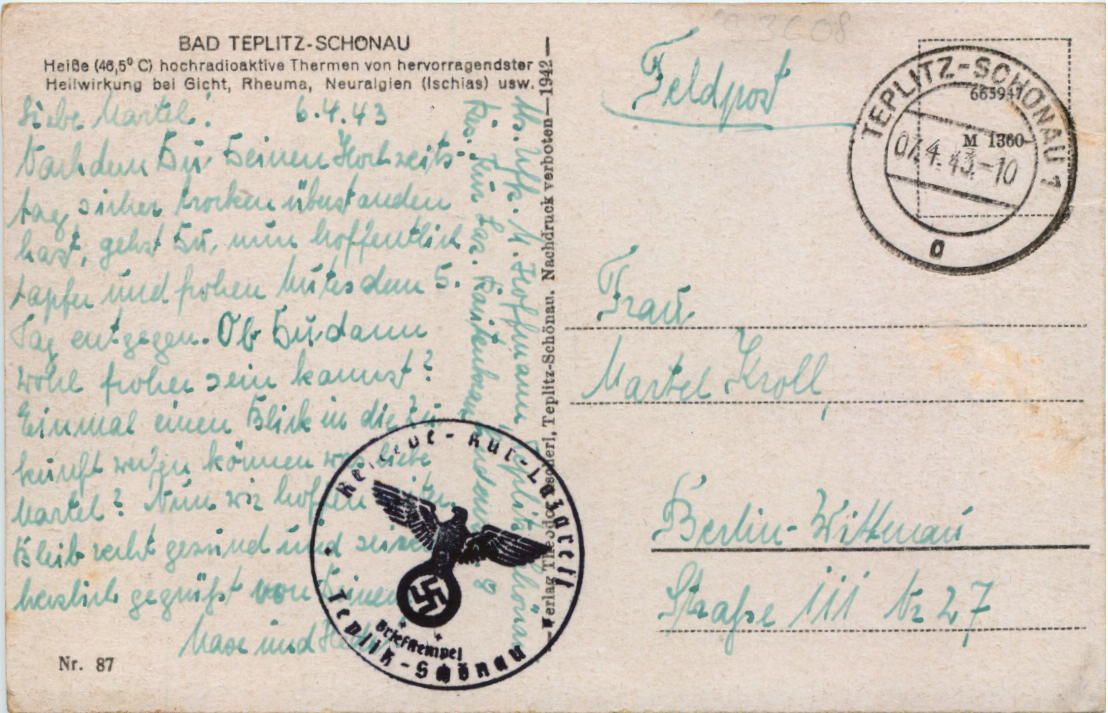 BAD TEPLITZ-SCHÖNAU
Heiße (46,5° C) hochradioaktive Thermen von hervorragendster
Heilwirkung bei Gicht, Rheuma, Neuralgien (Ischias) usw.
Liebe Martel! 6.4.43
Nachdem Du Deinen Hochzeits-
tag sicher trocken überstanden
hast, gehst Du nun hoffentlich
tapfer und frohen Mutes dem 5.
Tag entgegen. Ob Du dann
wohl froher sein kannst?
Einmal einen Blick in die Zu
kunft werfen können was liebe
Martel? Nun wir hoffen
Bleib recht gesund und sei
herzlich gegrüßt von Deinen
Maxe und
Nr. 87
Abs. Uffz. M. Hoffmann, Teplitz-Schönau
Res. Kur Laz.
Verlag Theodor Teplitz-Schönau. Nachdruck verboten—1942—
Feldpost
TEPLITZ-SCHÖNAU 1
07.4.43.-10
a
665947
M 1360
Frau
Martel Kroll,
Berlin-Wittenau
Straße III Nr 27
Reserve-Kur-Lazarett
Briefstempel
Teplitz-Schönau